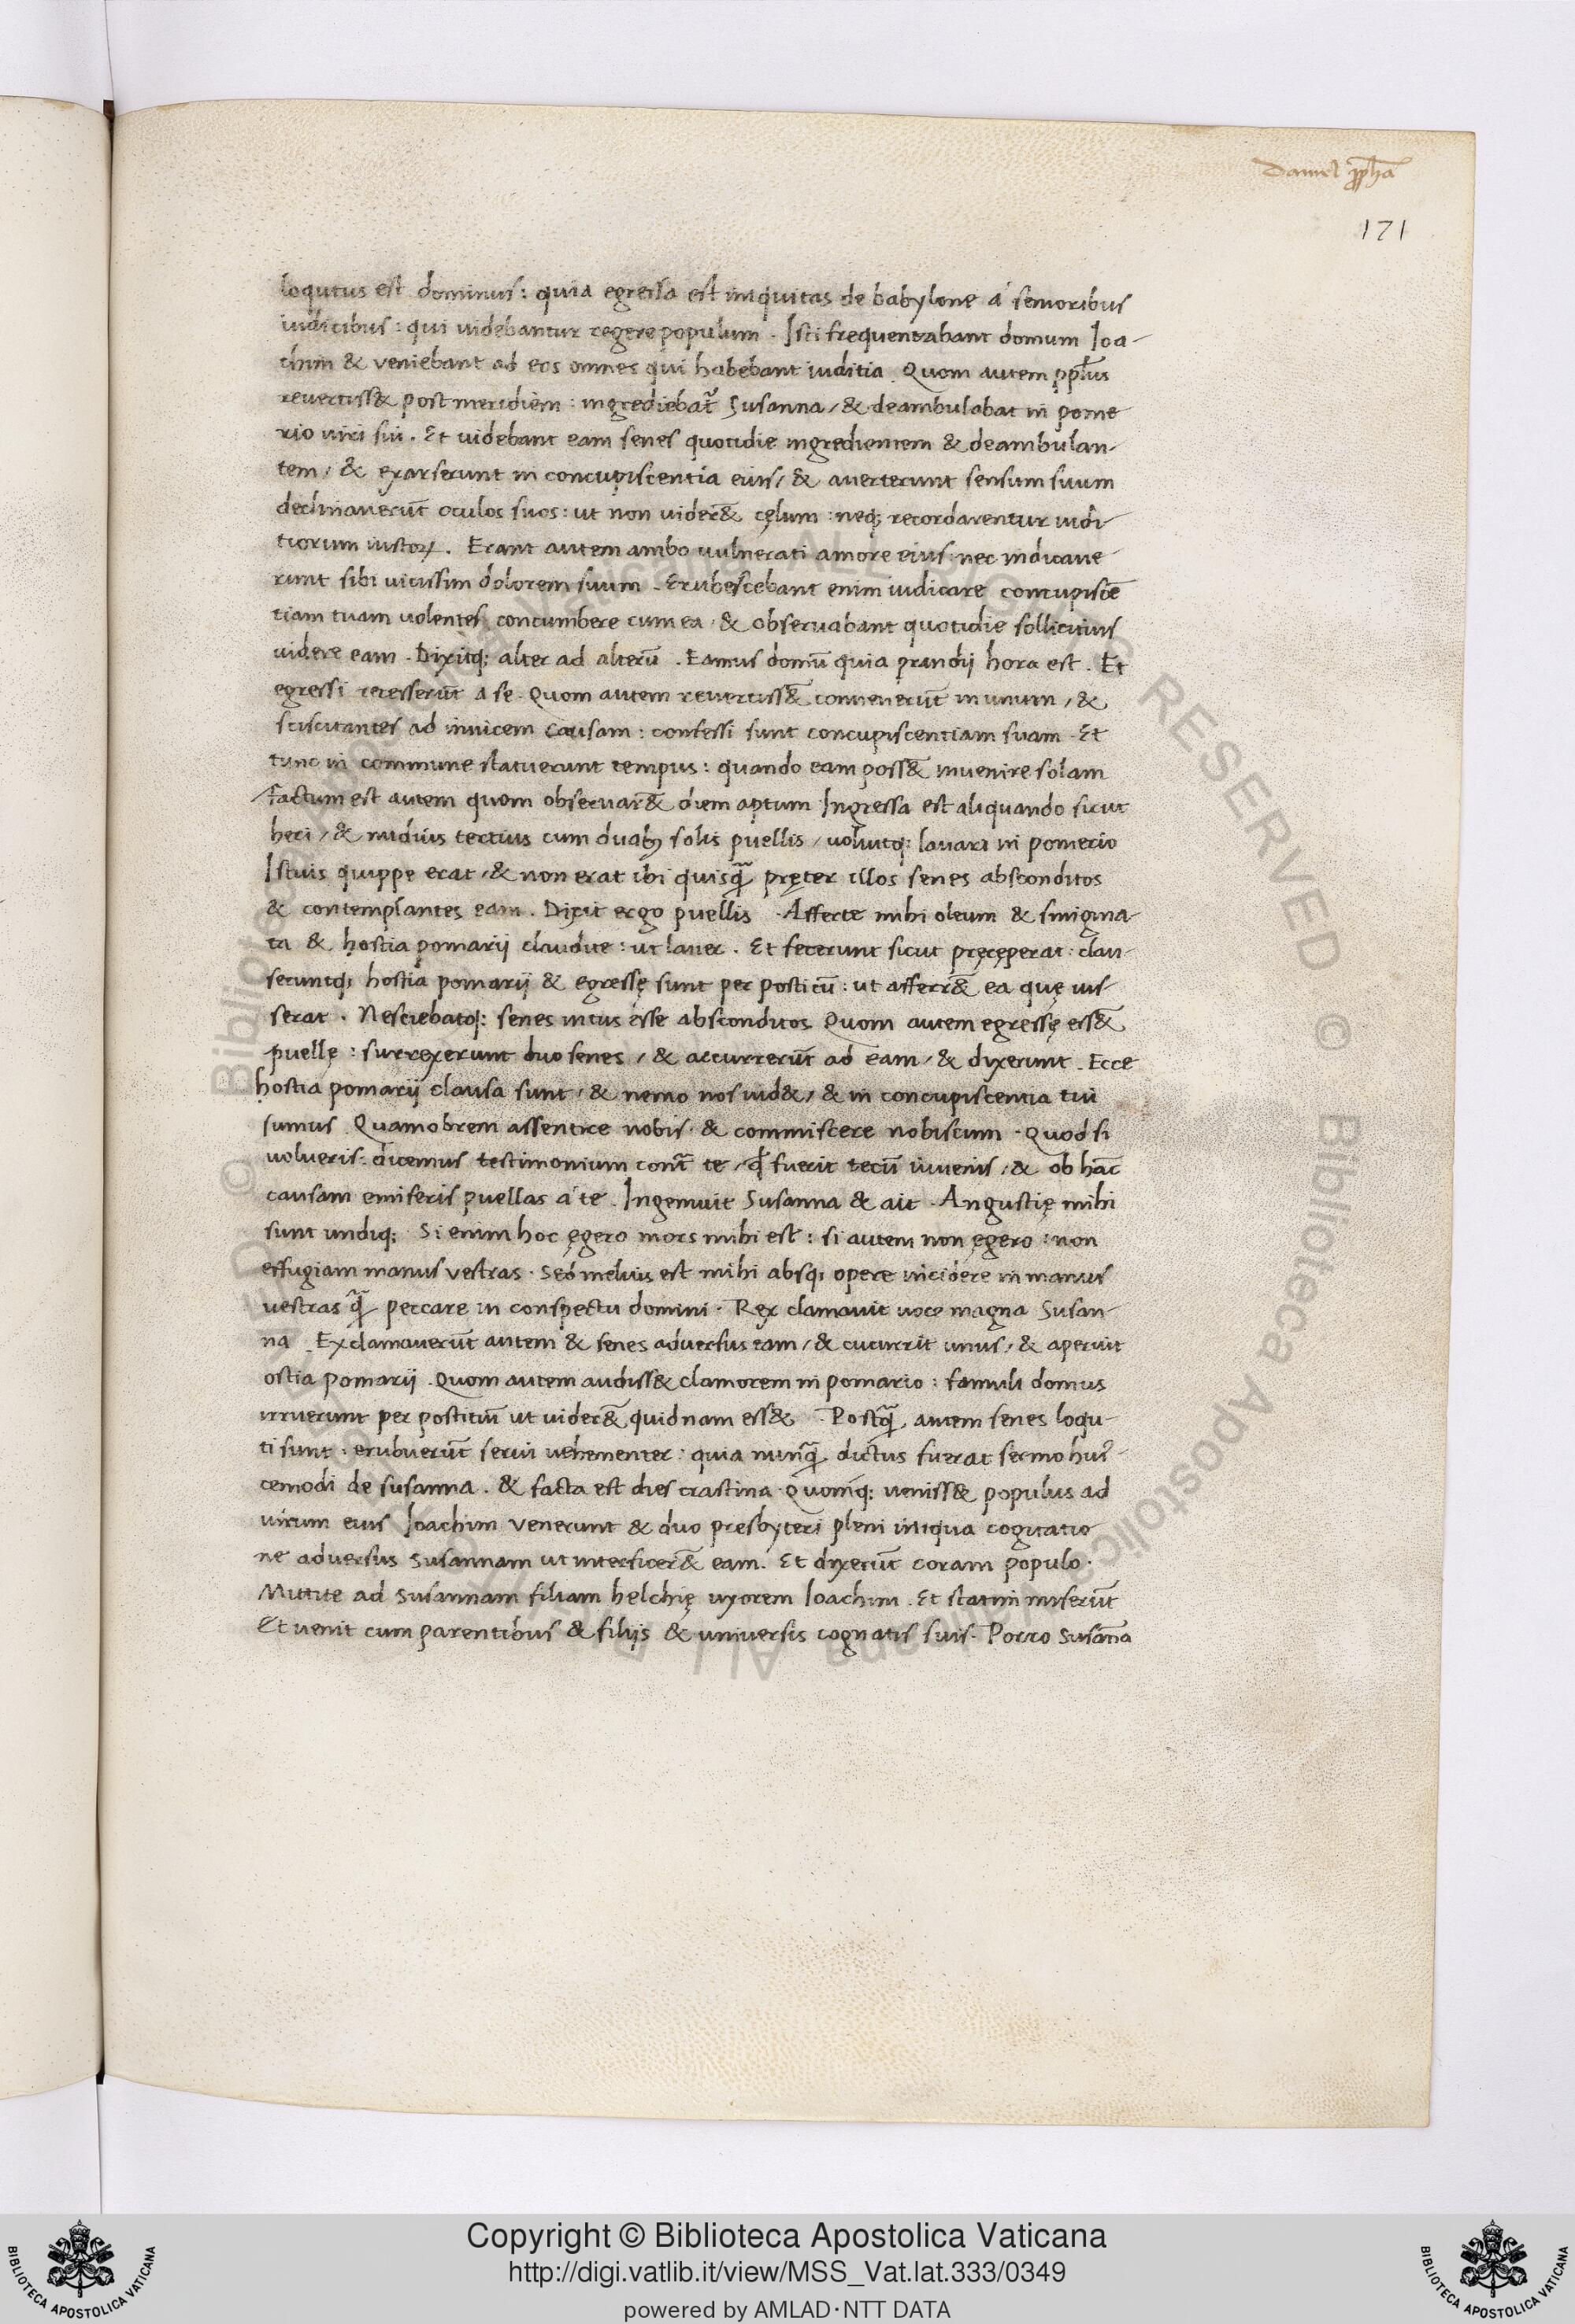 Daniel ꝓph̄a
171
loqutus est dominus: quia egressa est iniquitas de babylone á senioribus
iudicibus: qui uidebantur regere populum. Isti frequentabant domum Ioa-
chim & veniebant ad eos omnes qui habebant iuditia. Quom autem pp̄lus
revertiss& post meridiem: ingrediebat᷑ Susanna, & deambulabat in pome
rio viri sui. Et uidebant eam senes quotidie ingredientem & deambulan-
tem, & exarserunt in concupiscentia eius, & auerterunt sensum suum
declinauerūt oculos suos: ut non uider&̄ cęlum: neq; recordarentur iudi
tiorum iustoꝝ. Erant autem ambo vulnerati amore eius: nec indicaue
runt sibi uicissim dolorem suum. Erubescebant enim iudicare concupiscē
tiam tuam uolentes concumbere cum ea, & observabant quotidie sollicitius
uidere eam. Dixitq; alter ad alterū. Eamus domū quia prandij hora est. Et
egressi recesserūt a se. Quom autem revertiss&̄ convenerūt in unum, &
sciscitantes ad inuicem causam: confessi sunt concupiscentiam suam. Et
tunc in commune statuerunt tempus: quando eam poss&̄ invenire solam
Factum est autem quom observar&̄ diem aptum. Ingressa est aliquando sicut
heri, & nudius tertius cum duabꝫ solis puellis, voluitq; lavari in pomerio
Istuis quippe erat, & non erat ibi quisq̄ pręter illos senes absconditos
& contemplantes eam. Dixit ergo puellis. Afferte mihi oleum & smigma-
ta & hostia pomarij claudite: ut lauer. Et fecerunt sicut pręcęperat: clau-
seruntq; hostia pomarij & egressę sunt per posticū: ut afferr&̄ ea quę ius
serat. Nesciebatq; senes intus esse absconditos. Quom autem egressę ess&̄
puellę: surrexerunt duo senes, & accurrerūt ad eam, & dixerunt. Ecce
hostia pomarij clausa sunt, & nemo nos uid&, & in concupiscentia tui
sumus. Quamobrem assentire nobis, & commiscere nobiscum. Quod si
volueris: dicemus testimonium cont̄ te, qḋ fuerit tecū iuvenis, & ob hāc
causam emiseris puellas á te. Ingemuit Susanna & ait. Angustię mihi
sunt undiq; Si enim hoc ęgero mors mihi est: si autem non ęgero: non
effugiam manus vestras. Sed melius est mihi absq; opere incidere in manus
vestras q̄ peccare in conspectu domini. Rex clamauit uoce magna Susan-
na. Exclamaverūt autem & senes adversus eam, & cucurrit unus, & aperuit
ostia pomarij. Quom autem audiss& clamorem in pomario: famuli domus
irruerunt per posticum ut uider&̄ quidnam ess&. Postq̄ autem senes loqu-
ti sunt: erubuerūt servi uehementer: quia nunq̄ dictus fuerat sermo huius
cemodi de susanna. & facta est dies crastina. Quomq; veniss& populus ad
virum eius Ioachim venerunt & duo presbyteri pleni iniqua cogitatio
ne adversus Susannam ut interficer&̄ eam. Et dixerūt coram populo.
Mittite ad Susannam filiam helchię uxorem Ioachim. Et statim miserūt
Et uenit cum parentibus & filijs & universis cognatis suis. Porro Susāna
Copyright © Biblioteca Apostolica Vaticana
http://digi.vatlib.it/view/MSS_Vat.lat.333/0349
powered by AMLAD·NTT DATA